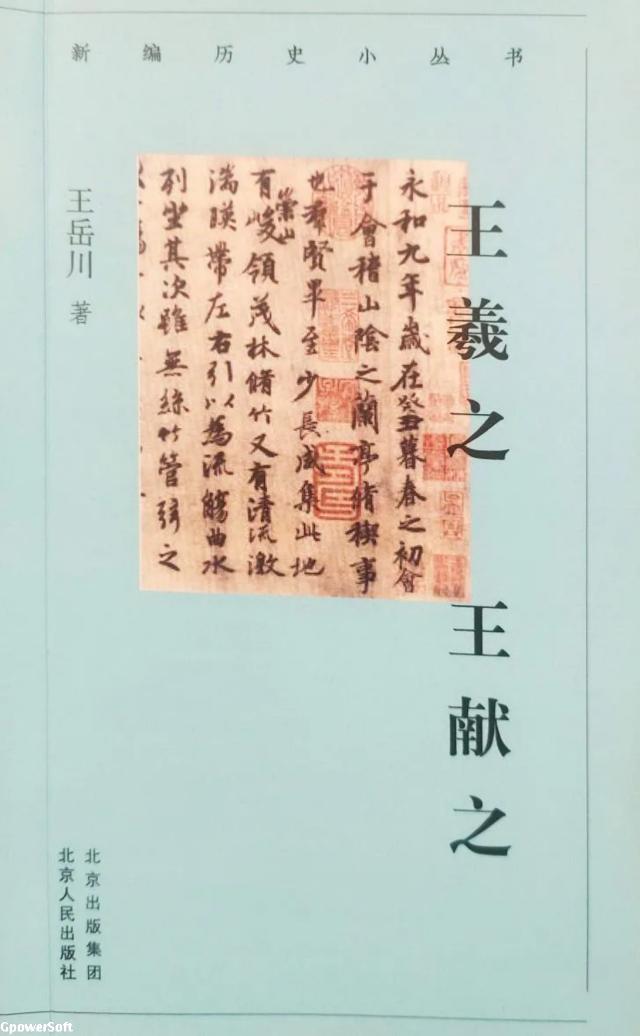 新编历史小丛书
王羲之 王献之
王岳川 著
永和九年歲在癸丑暮春之初會
于會稽山陰之蘭亭脩稧事
也羣賢畢至少長咸集此地
有崇山峻領茂林脩竹又有清流激
湍暎帶左右引以為流觴曲水
列坐其次雖無絲竹管弦之
北京出版集团
北京人民出版社
GpowerSoft